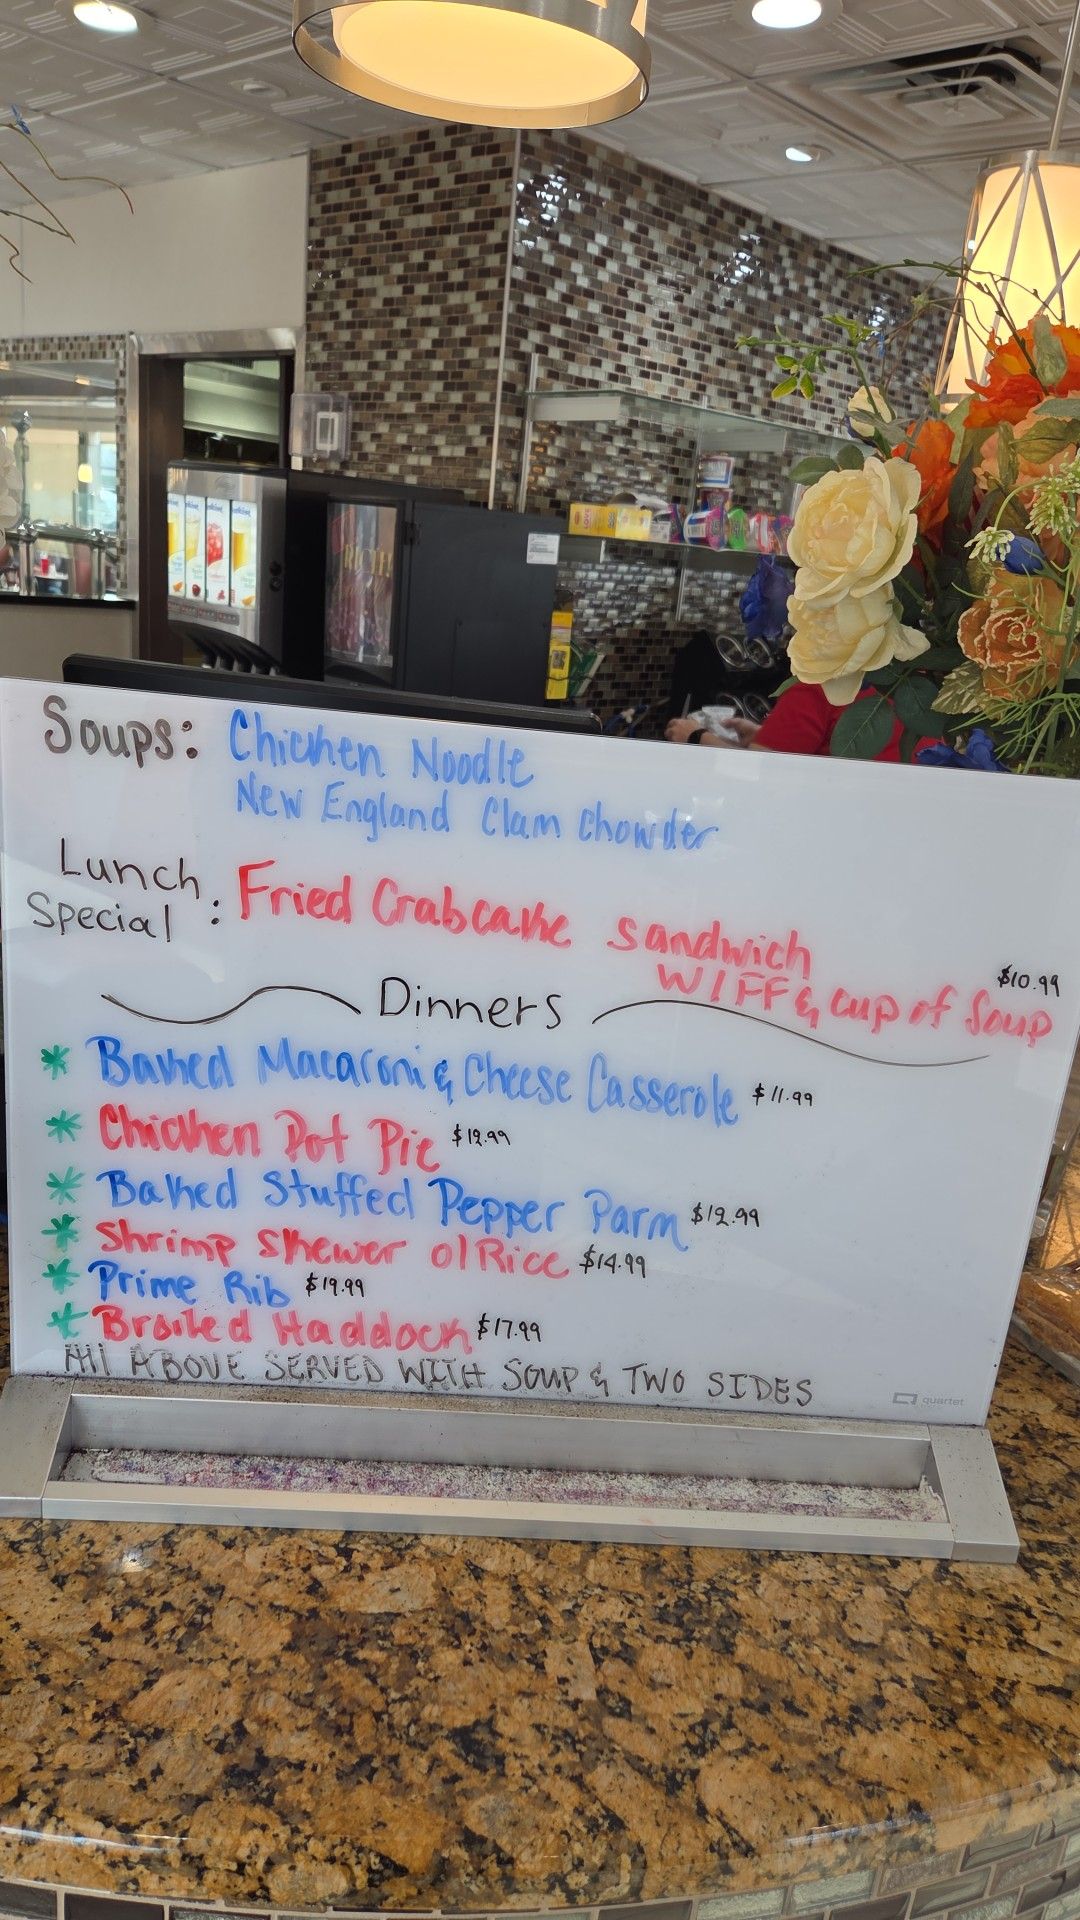 Soups: Chicken Noodle
New England Clam Chowder
Lunch Special : Fried Crabcake sandwich
W/ FF & cup of Soup $10.99
Dinners
* Baked Macaroni & Cheese Casserole $11.99
* Chicken Pot Pie $12.99
* Baked Stuffed Pepper Parm $12.99
* Shrimp Skewer o/Rice $14.99
* Prime Rib $19.99
* Broiled Haddock $17.99
All ABOVE SERVED WITH SOUP & TWO SIDES
quartet
RICH